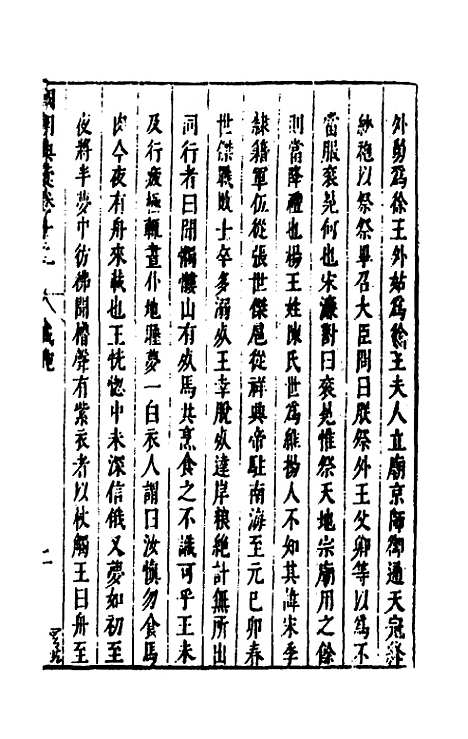 外舅爲徐王外姑爲徐王夫人立廟京師御通天冠絳
紗袍以祭祭畢召大臣問曰朕祭外王父卿等以爲不
當服袞冕何也宋濂對曰袞冕惟祭天地宗廟用之餘
則當降禮也楊王姓陳氏世爲維揚人不知其諱宋季
隸籍軍伍從張世傑扈從祥興帝駐南海至元己卯春
世傑戰敗士卒多溺死王幸脫死達岸粮絶計無所出
同行者曰聞髑髏山有死馬共烹食之不識可乎王未
及行疲極輒晝仆地睡夢一白衣人謂曰汝愼勿食馬
肉今夜有舟來載也王恍惚中未深信俄又夢如初至
夜將半夢中彷彿聞櫓聲有紫衣者以杖觸王曰舟至
國朝典彙卷